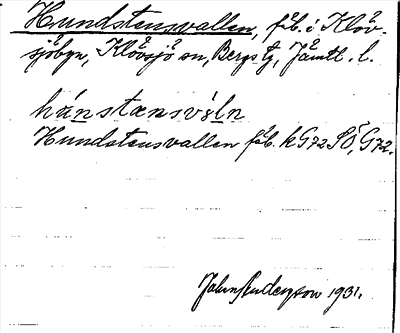 Hundstensvallen, fäb. i Klöv-
sjöbyn, Klövsjö sn, Bergs tg, Jämtl. l.
hùnstænsvàln
Hundstensvallen fäb. kG72SÖ, G72.
John Anderson 1931.